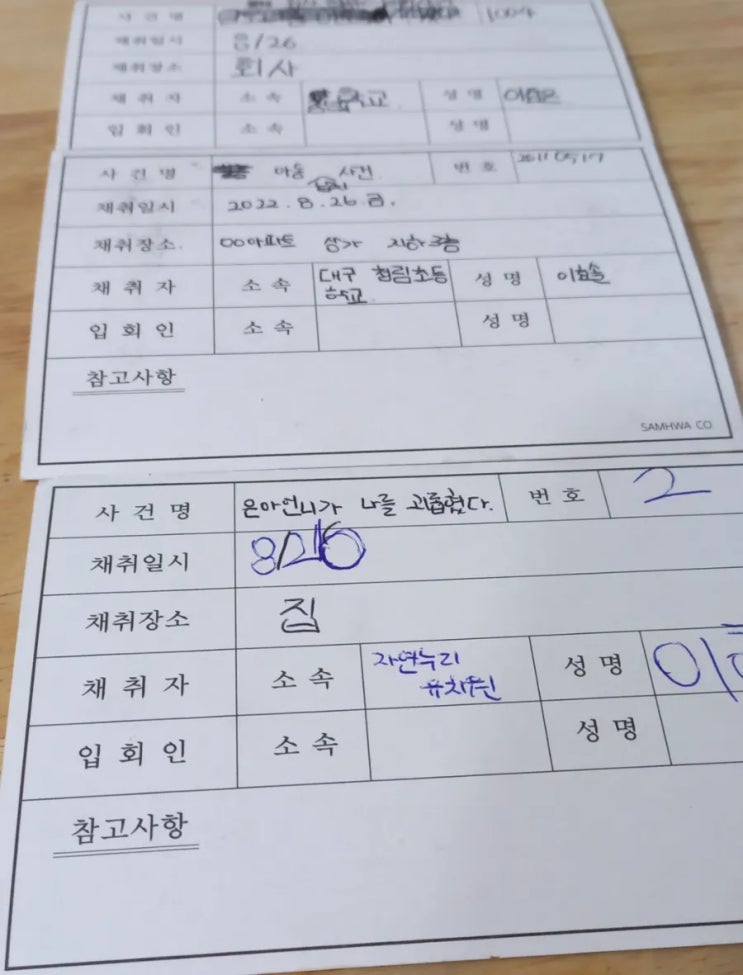 사건명 1004
채취일시 8/26
채취장소 회사
채취자 소속 학교 성명
입회인 소속 성명
사건명 아동 사건 번호
납치
채취일시 2022.8.26 금.
채취장소 OO아파트 상가 지하 3층
채취자 소속 대구 청림초등 성명 이효솔
학교
입회인 소속 성명
참고사항
SAMHWA CO
사건명 은아언니가 나를 괴롭혔다. 번호 2
채취일시 8/26
채취장소 집
채취자 소속 자연누리 성명
유치원
입회인 소속 성명
참고사항